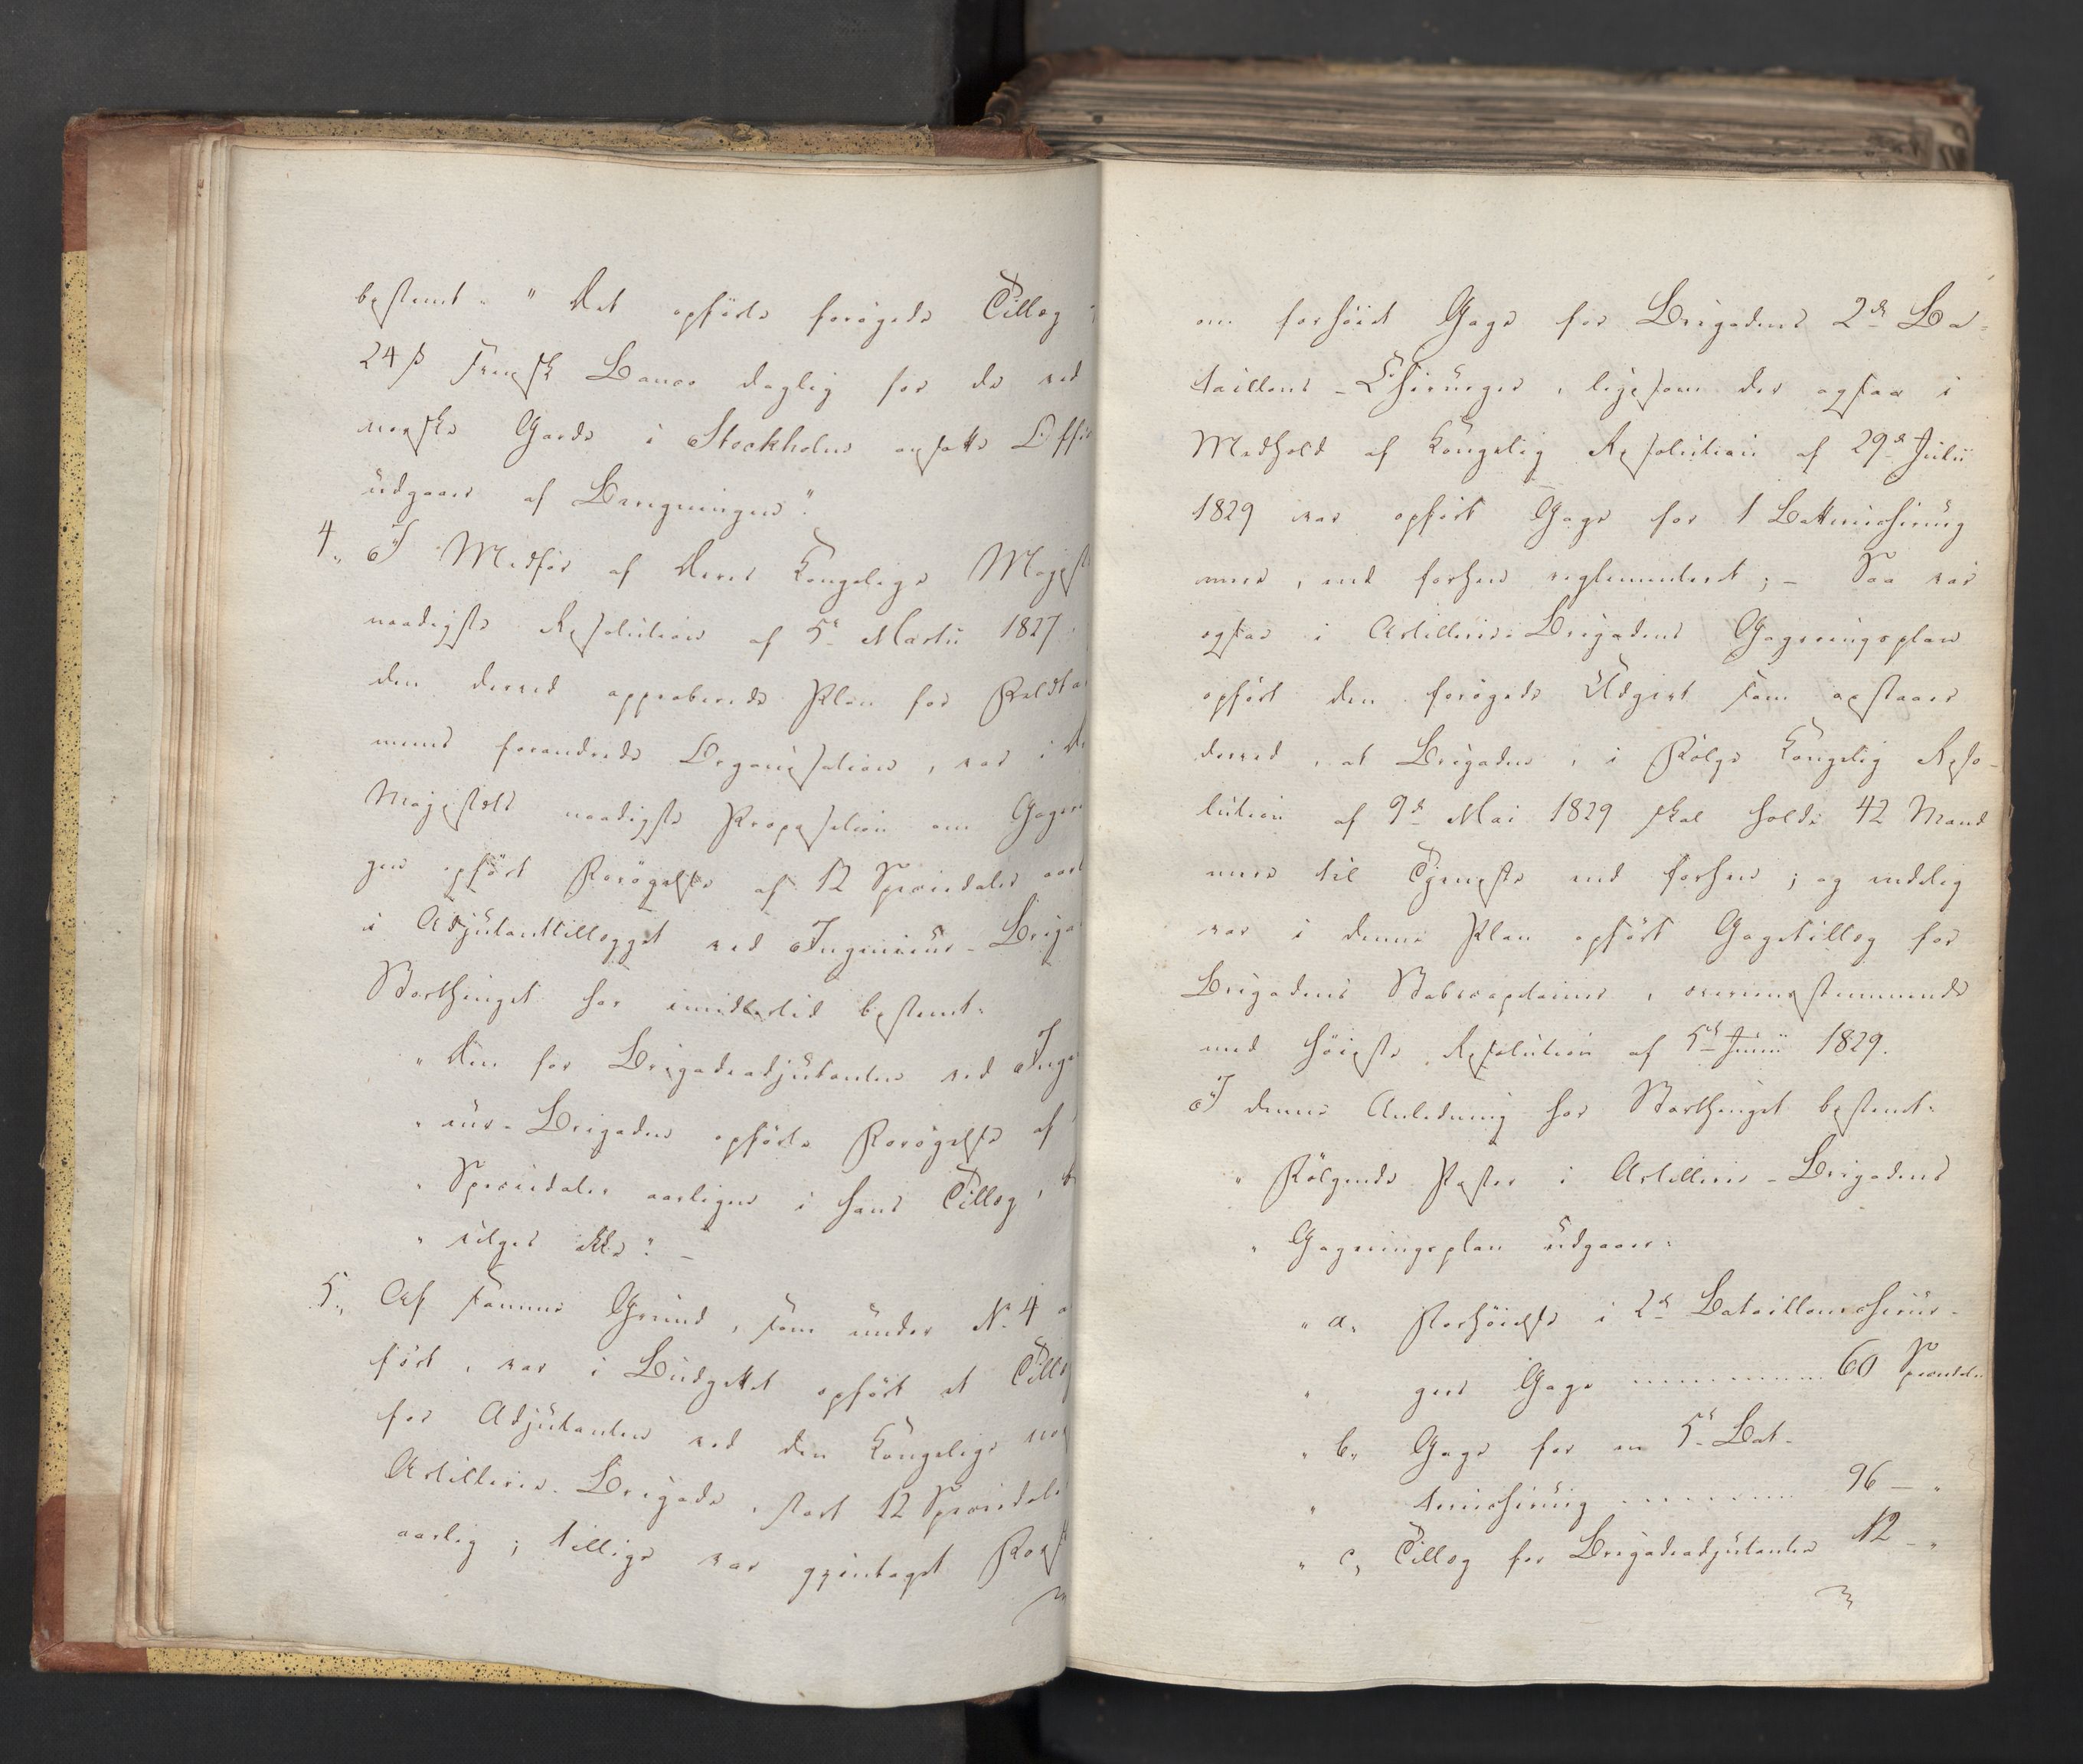 bestemt: "Det opførte forøgede Tillæg
24 ß Svensk Banco daglig for de ved
norske Garde i Stockholm ansatte Offi
udgaaer af Beregningen".
4., I Medfør af Deres Kongelige Majest
naadigste Resolution af 5te Martii 1827,
den derved approberede Plan for Feldta
mens forandrede Organisation, var i De
Majestæts naadigste Proposition om Gager
gen opført Forøgelse af 12 Speciedaler aarl
i Adjutanttillægget ved Ingenieur-Briga
Storthinget har imidlertid bestemt:
"Den for Brigadeadjutanten ved Inge
" eur-Brigaden opførte Forøgelse af
" Speciedaler aarligen i hans Tillæg, be
" vilges ikke". –
5., Af samme Grund, som under No 4 a
ført, var i Budgettet opført et Tillæ
for Adjutanten ved den Kongelige nor
Artillerie-Brigade, stort 12 Speciedale
aarlig; tillige var gjentaget Forst
om forhøiet Gage for Brigadens 2den Ba-
taillons-Chirurger, ligesom der ogsaa i
Medhold af Kongelig Resolution af 29de Julii
1829 var opført Gage for 1 Battericirurg
mere, end forhen reglementeret; – Saa var
ogsaa i Artillerie-Brigadens Gageringsplan
opført den forøgede Udgivt som opstaaer
derved, at Brigaden, i Følge Kongelig Reso-
lution af 9de Mai 1829 skal holde 42 Mand
mere til Tjeneste end forhen; og endelig
var i denne Plan opført Gagetillæg for
Brigadens Stabscapitainer, overeensstemmende
med høieste Resolution af 5te Junii 1829.
I denne Anledning har Storthinget bestemt:
" Følgende Poster i Artillerie-Brigadens
" Gageringsplan udgaaer:
" a, Forhøielse i 2den Bataillonschirur-
" gers Gage ............ 60 Speciedaler
" b, Gage for en 5te Bat-
" terichirurg .......... 96 – "
" c, Tillæg for Brigadeadjutanten 12 – "